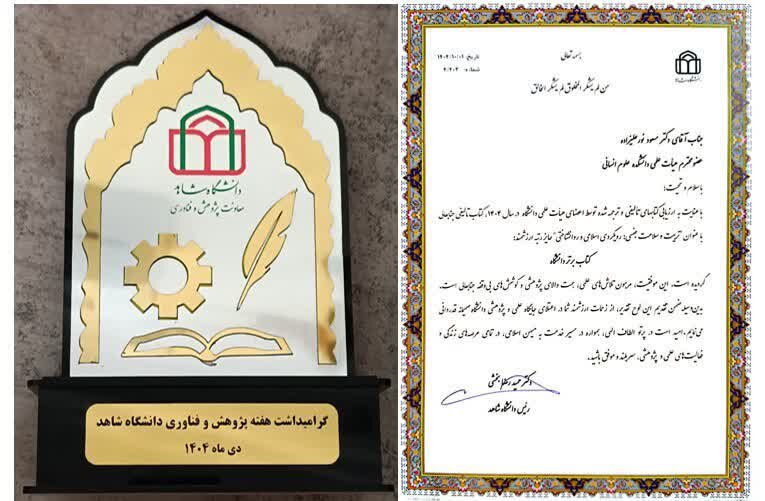 دانشگاه شاهد
معاونت پژوهش و فناوری
گرامیداشت هفته پژوهش و فناوری دانشگاه شاهد
دی ماه ۱۴۰۴
بسمه تعالی
دانشگاه شاهد
من لم یشکر المخلوق لم یشکر الخالق
جناب آقای دکتر مسعود نورعلیزاده
عضو محترم هیات علمی دانشکده علوم انسانی
با سلام و تحیت؛
با عنایت به ارزیابی کتابهای تالیفی و ترجمه شده توسط اعضای هیات علمی دانشگاه در سال ۱۴۰۴، کتاب تالیفی جنابعالی
با عنوان "تربیت و سلامت جنسی: رویکردی اسلامی و روانشناختی" حایز رتبه ارزشمند:
کتاب برتر دانشگاه
گردیده است. این موفقیت، مرهون تلاش‌های علمی، همت والای پژوهشی و کوشش‌های بی‌وقفه جنابعالی است.
بدین‌وسیله ضمن تقدیم این لوح تقدیر، از زحمات ارزشمند شما در اعتلای جایگاه علمی و پژوهشی دانشگاه صمیمانه قدردانی
می‌نمایم. امید است در پرتو الطاف الهی، همواره در مسیر خدمت به میهن اسلامی، در تمامی عرصه‌های زندگی و
فعالیت‌های علمی و پژوهشی، سربلند و موفق باشید.
رئیس دانشگاه شاهد